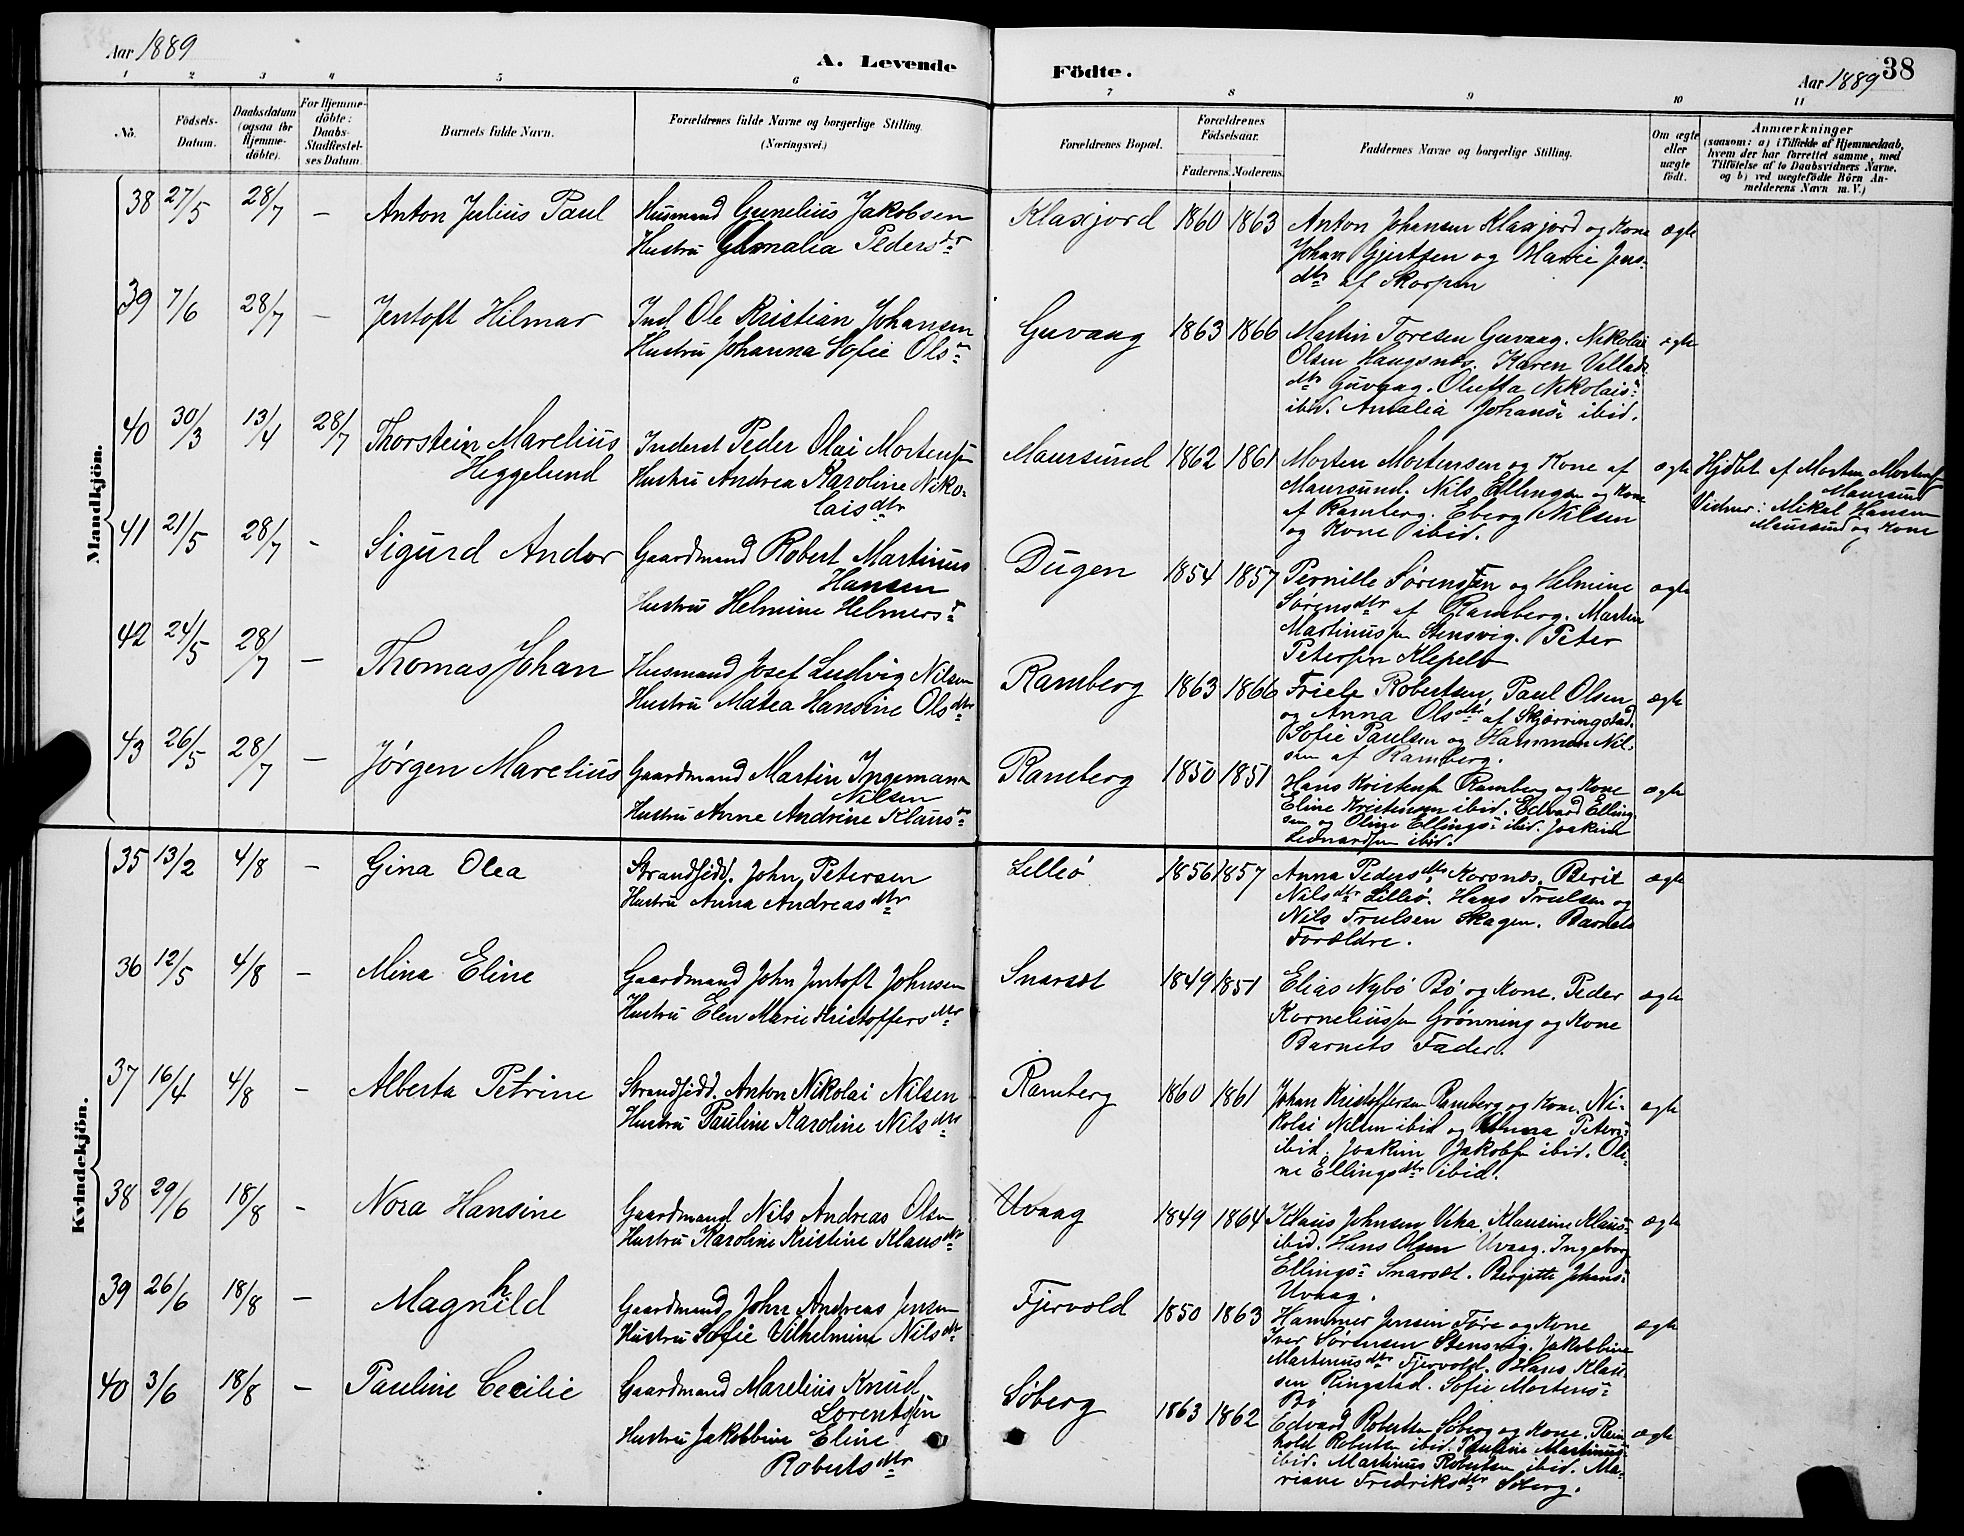 Aar 1889
A. Levende
Födte.
Aar 1889 38
1 2 3 4 5 6 7 8 9 10 11
No.
Födsels-
Datum.
Daabsdatum
(ogsaa for
Hjemme-
döbte).
For Hjemme-
döbte:
Daabs-
Stadfæstel-
ses Datum.
Barnets fulde Navn.
Forældrenes fulde Navne og borgerlige Stilling.
(Næringsvei.)
Forældrenes Bopæl.
Forældrenes
Födselsaar.
Faderens. Moderens.
Faddernes Navne og borgerlige Stilling.
Om ægte
eller
uægte
født.
Anmærkninger
(saasom: a) i Tilfælde af Hjemmedaab,
hvem der har forrettet samme, med
Tilföielse af to Daabsvidners Navne.
og b) ved uægtefödte Börn An-
melderens Navn m. V.)
Mandkjön.
38 27/5 28/7 — Anton Julius Paul
Husmand Gunelius Jakobsen
Hustru Amalia Pedersdtr
Klaxjord 1860 1863
Anton Johansen Klaxjord og Kone
Johan Gjertsen og Marie Jens-
dtr af Skorpen
ægte
39 7/6 28/7 — Jentoft Hilmar
Ind. Ole Kristian Johansen
Hustru Johanna Sofie Olsdtr
Guvaag 1863 1866
Martin Toresen Guvaag. Nikolai
Olsen Haugsnes. Karen Vellads-
dtr Guvaag. Oluffa Nikolaisdtr
ibid. Amalia Johans ibid.
ægte
40 30/3 13/4 28/7 Thorstein Marelius
Heggelund
Inderst Peder Olai Mortensen
Hustru Andrea Karoline Niko-
laisdtr
Maursund 1862 1861
Morten Mortensen og Kone af
Maursund. Nils Ellingsen og Kone
af Ramberg. Eberg Nilsen
og Kone ibid.
ægte
Hjdbt af Morten Mortens
Maursund
Vidner: Mikal Hansen
Maursund og Kone
41 21/5 28/7 - Sigurd Andor
Gaardmand Robert Martinus
Hansen
Hustru Helmine Helmersdtr
Dugen 1854 1857
Pernille Sørensen og Helmine
Sørensdtr af Ramberg. Martin
Martinussen Stensvig. Peter
Petersen Klepelv
ægte
42 24/5 28/7 — Thomas Johan
Husmand Josef Ludvig Nilsen
Hustru Matea Hansine Olsdtr
Ramberg 1863 1866
Friele Robertsen, Paul Olsen
og Anna Olsdtr af Skjørringstad.
Sofie Paulsen og Hammer Nil-
sen af Ramberg.
ægte
43 26/5 28/7 — Jørgen Marelius
Gaardmand Martin Ingeman
Nilsen
Hustru Anne Andrine Klausdtr
Ramberg 1850 1851
Hans Kristens Ramberg og Kone
Eline Kristensen ibid. Edvard Elling-
sen og Oline Ellings ibid. Joakim
Leonardsen ibid.
ægte
Kvindekjön.
35 13/2 4/8 — Gina Olea
Strandsidd. John Petersen
Hustru Anna Andreasdtr
Lilleø 1856 1857
Anna Pedersdtr Korsnes. Berit
Nilsdtr Lilleø. Hans Trulsen og
Nils Trulsen Skagen. Barnets
Forældre.
ægte
36 12/5 4/8 — Mina Eline
Gaardmand John Jentoft Johnsen
Hustru Elen Marie Kristoffersdtr
Snarset 1849 1851
Elias Nybø Bø og Kone. Peder
Korneliussen Grønning og Kone
Barnets Fader.
ægte
37 16/4 4/8 — Alberta Petrine
Strandsidd. Anton Nikolai Nilsen
Hustru Pauline Karoline Nilsdtr
Ramberg 1860 1861
Johan Kristoffersen Ramberg og Kone. Ni-
kolai Nilsen ibid og Anna Peters
ibid. Joakim Jakobs ibid. Oli-
ne Ellingsdtr ibid.
ægte
38 29/6 18/8 - Nora Hansine
Gaardmand Nils Andreas Olsen
Hustru Karoline Kristine Klausdtr
Uvaag 1849 1864
Klaus Johnsen Veka. Klausine Klaus
ibid. Hans Olsen Uvaag. Ingeborg
Ellings Snarset. Birgitte Johans
Uvaag.
ægte
39 26/6 18/8 — Magnhild
Gaardmand John Andreas Jensen
Hustru Sofie Vilhelmine Nilsdtr
Fjervold 1850 1863
Hammer Jensen Føre og Kone
Iver Sørensen Stensvig. Jakobbine
Martinusdtr Fjervold. Hans Klau-
sen Ringstad. Sofie Mortens
Bø
ægte
40 3/6 18/8 — Pauline Cecilie
Gaardmand Marelius Knud
Lorentsen
Hustru Jakobbine Eline
Robertsdtr
Søberg 1863 1862
Edvard Robertsen Søberg og Kone. Rein-
hold Robertsen ibid. Pauline Martinus
ibid. Martinus Robertsen ibid. Ma-
riane Fredriksdtr Søberg.
ægte